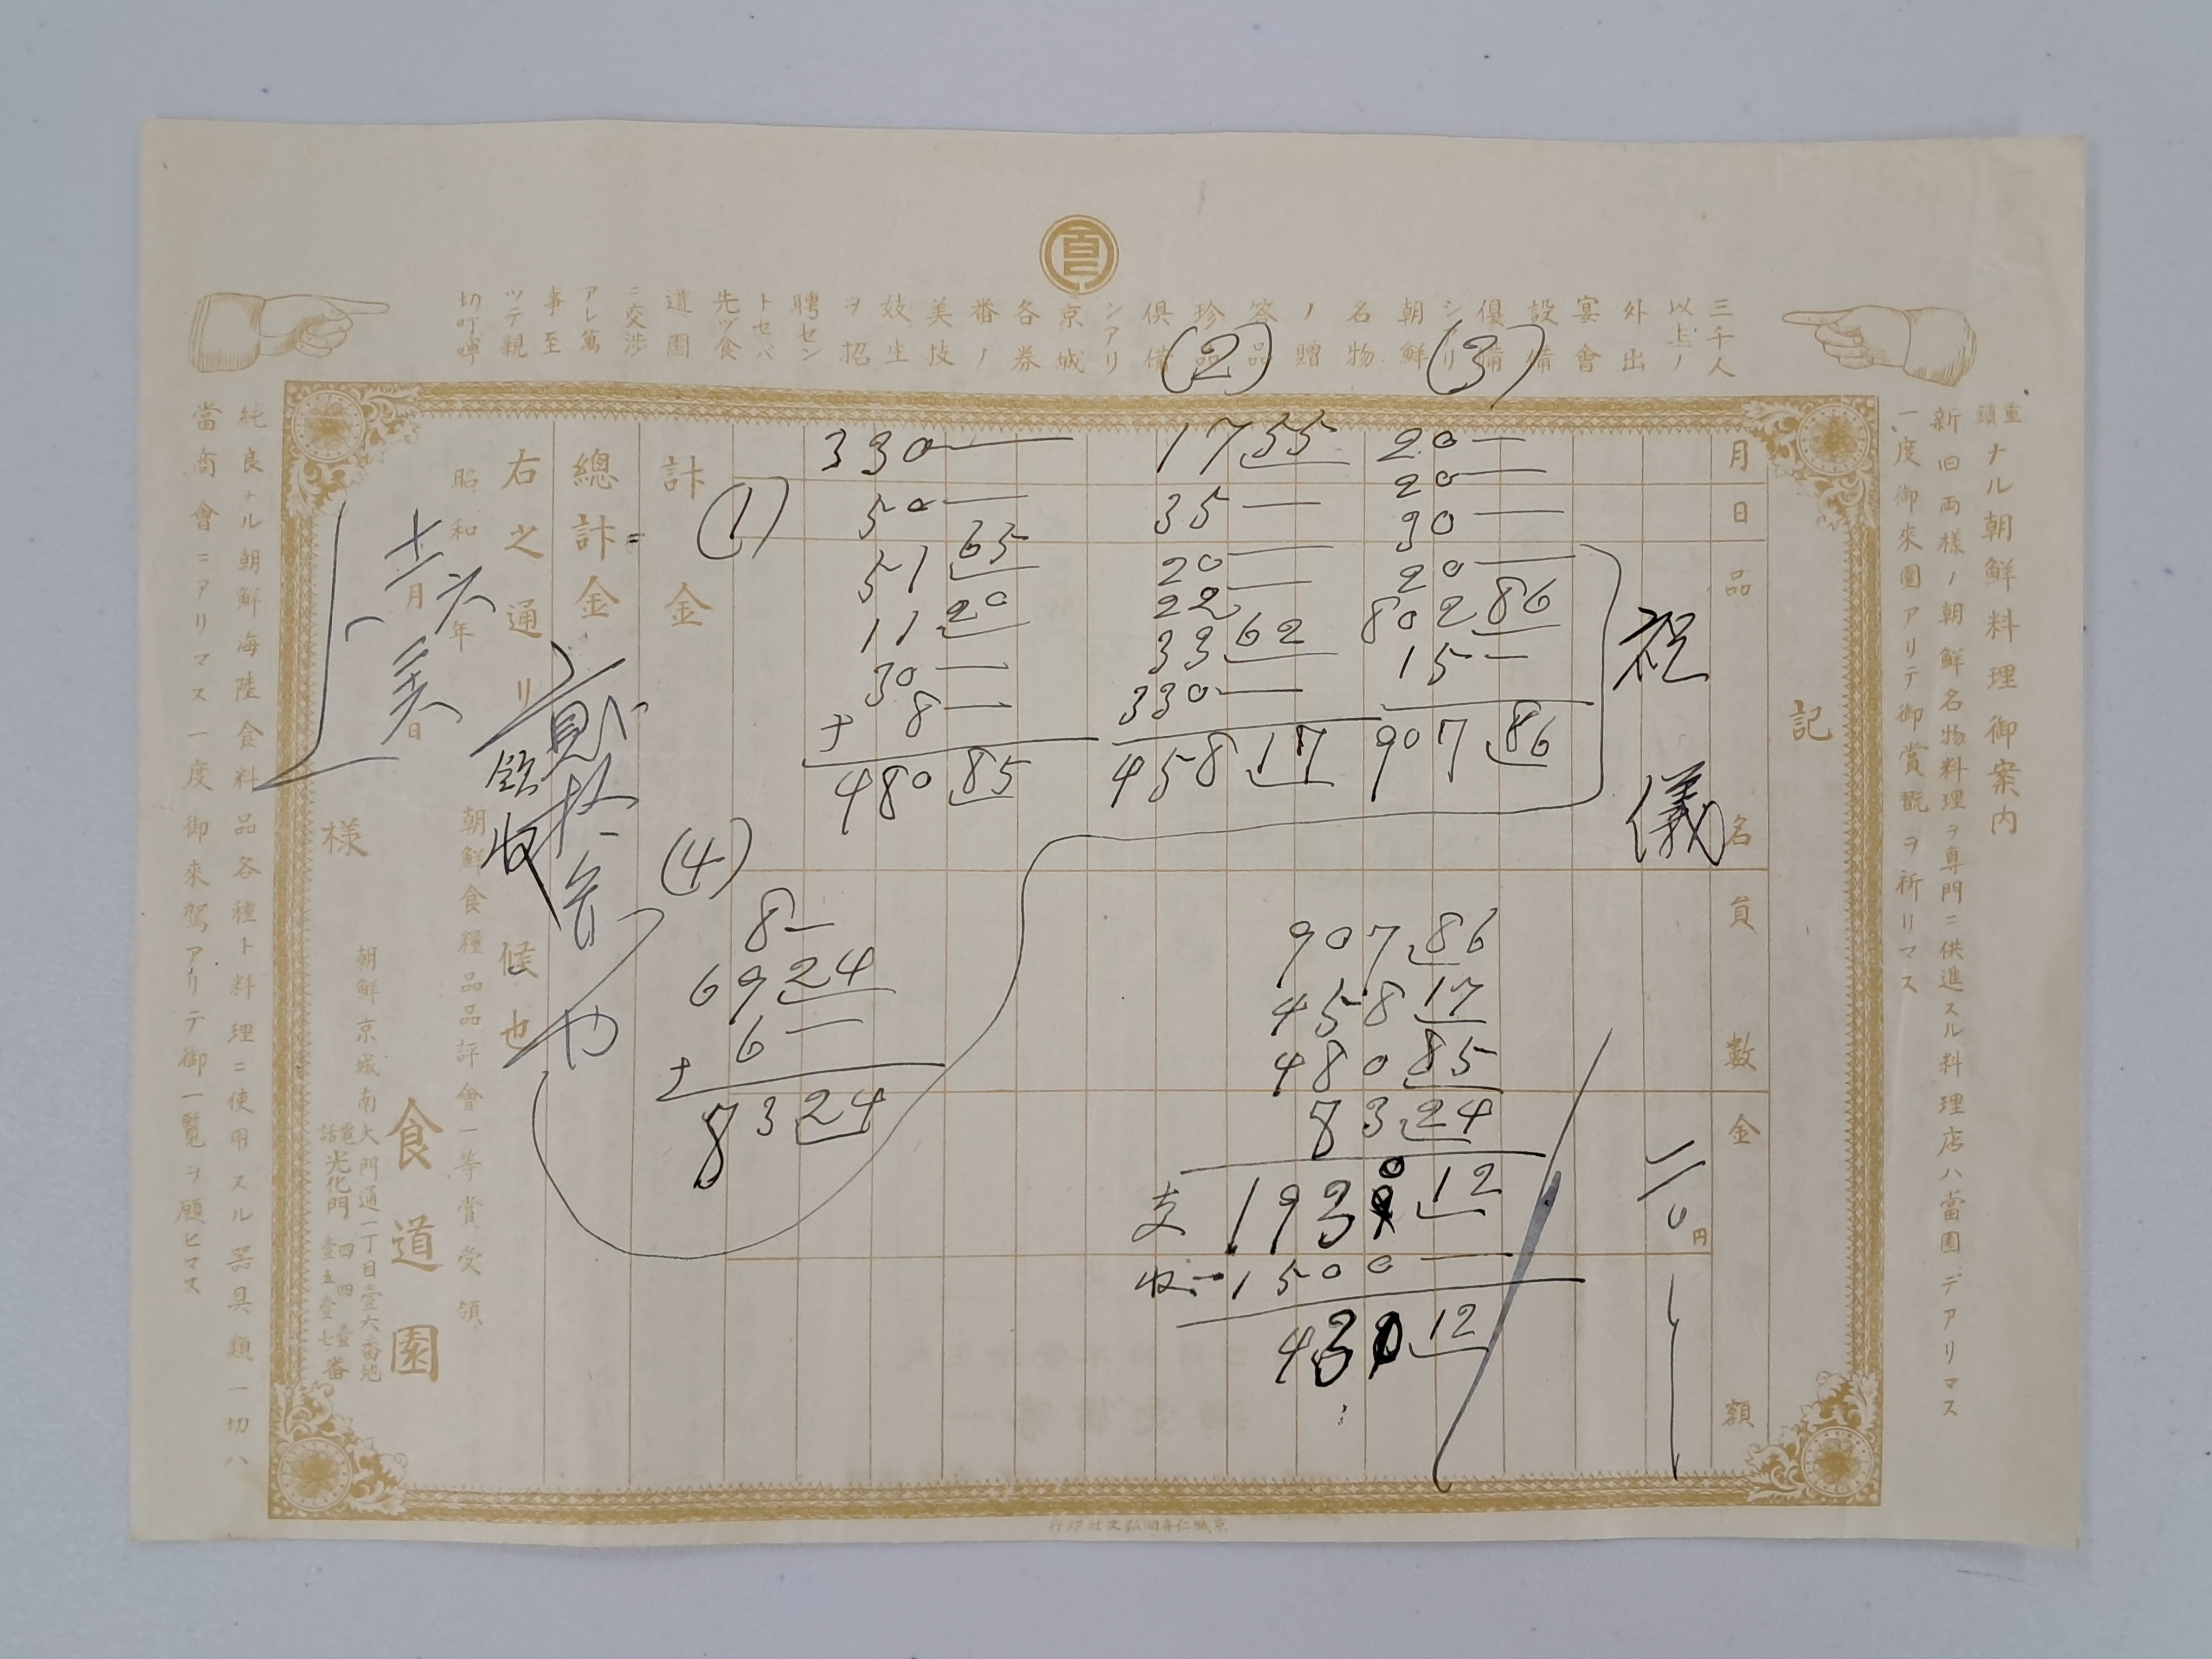 三千人以上ノ外出宴會設備優備シアリ朝鮮名物ノ贈答品珍品俱備シアリ京城各券番ノ美技妓生ヲ招聘セントセバ先ヅ食道園ニ交渉アレ萬事至ツテ親切叮嚀
重鎮ナル朝鮮料理御案内
新旧両様ノ朝鮮名物料理ヲ專門ニ供進スル料理店ハ當園デアリマス
一度御來園アリテ御賞翫ヲ祈リマス
記
月日
品名
員數
金額
祝儀
二〇
円
(3)
20―
20―
30―
20―
802 86
15―
907 86
(2)
17 55
35―
20―
22―
33 62
330―
458 17
(1)
330―
50―
51 65
11 20
30―
+ 8―
480 85
907 86
458 17
480 85
83 24
支 1930 12
収 -1500―
430 12
(4)
8―
69 24
6―
+
83 24
計金
總計金
右之通リ候也
領収
也
昭和 年 月 日
十六
十一
様
朝鮮食糧品品評會一等賞受領
食道園
朝鮮京城南大門通一丁目壹六番地
電話光化門
四四壹番
壹五壹七番
純良ナル朝鮮海陸食料品各種ト料理ニ使用スル器具類一切ハ
當商會ニアリマス一度御來駕アリテ御一覽ヲ願ヒマス